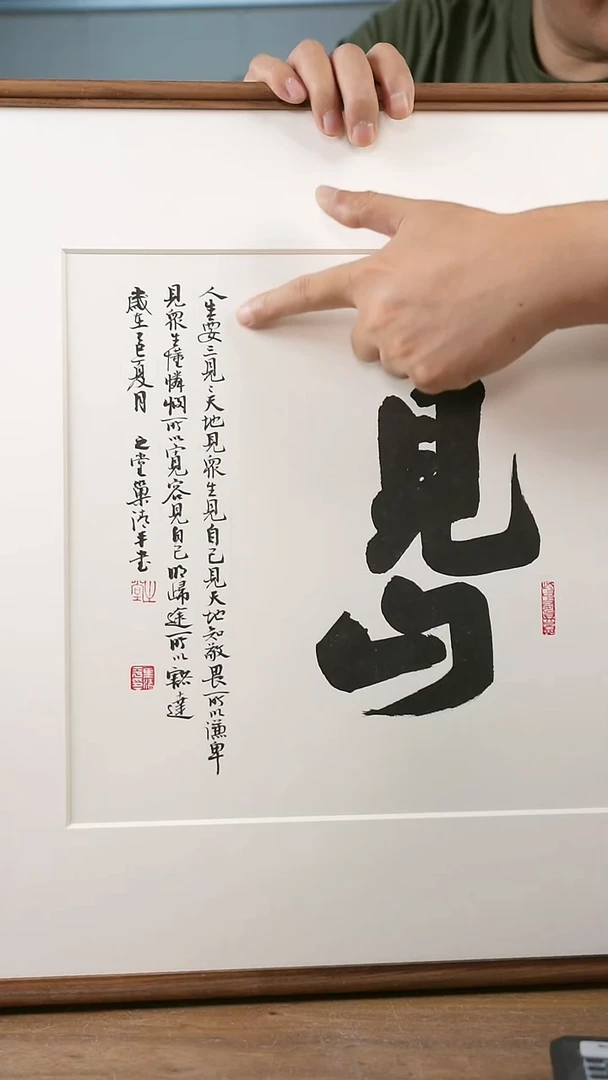 見山
人生要三見〻天地見衆生見自己見天地知敬畏所以謙卑
見衆生懂憐憫所以寬容見自己明歸途所以豁達
歲在乙巳夏月 之堂巢平書
之堂